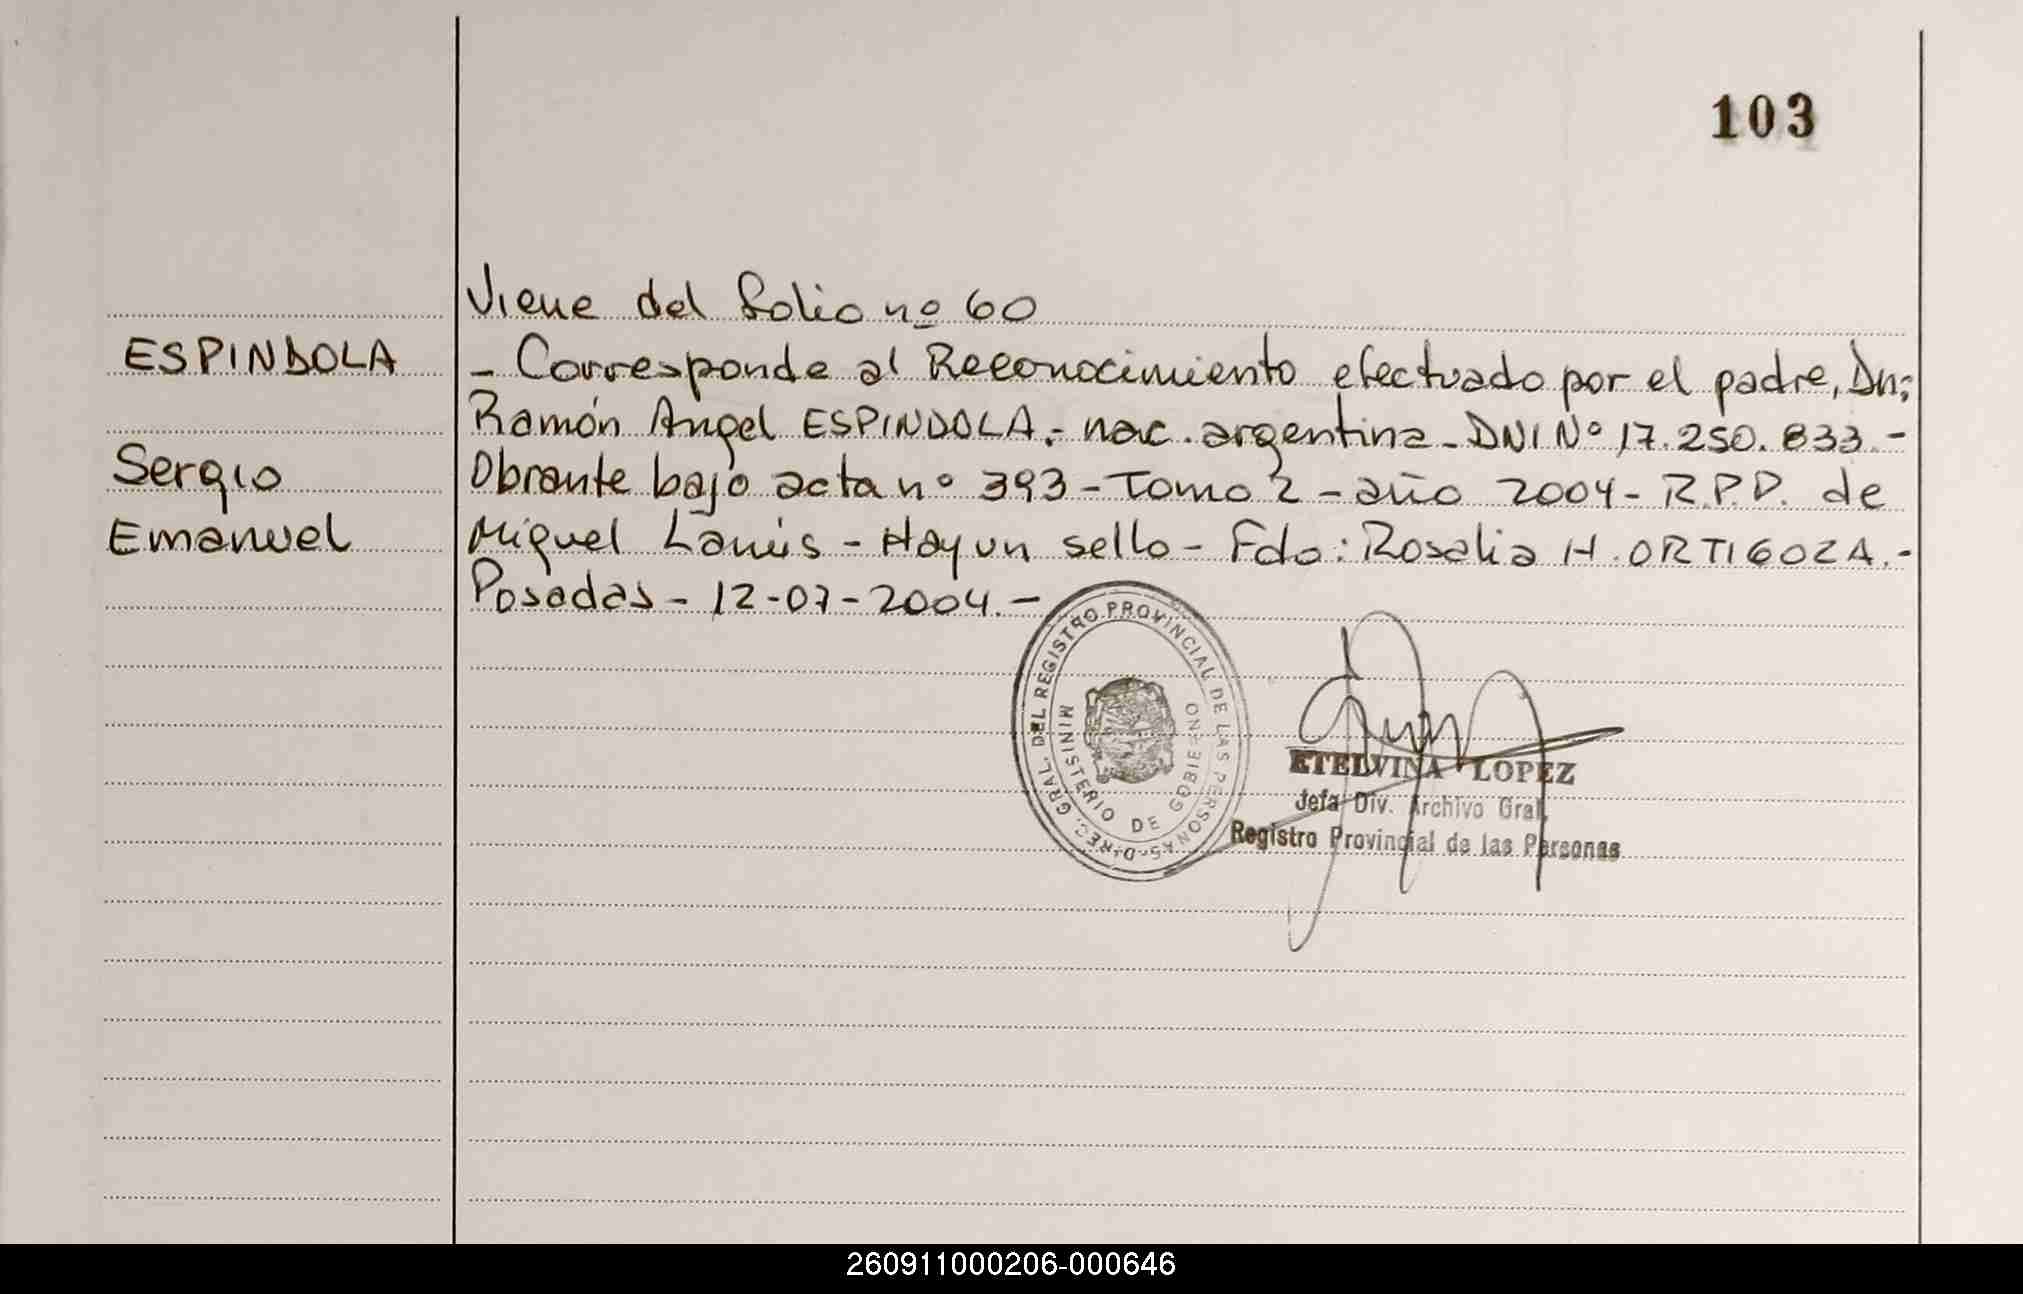 103
Viene del folio nº 60
ESPINDOLA
- Corresponde al Reconocimiento efectuado por el padre, Dn;
Ramón Angel ESPINDOLA.- nac. argentina - DNI Nº 17.250.833.-
Sergio
Obrante bajo acta nº 393 - Tomo 2 - año 2004 - R.P.D. de
Emanuel
Miguel Lanús - Hay un sello - Fdo: Rosalia H. ORTIGOZA.-
Posadas - 12-07-2004.-
DIREC. GRAL. DEL REGISTRO PROVINCIAL DE LAS PERSONAS
MINISTERIO DE GOBIERNO
ETELVINA LOPEZ
Jefa Div. Archivo Gral.
Registro Provincial de las Personas
260911000206-000646